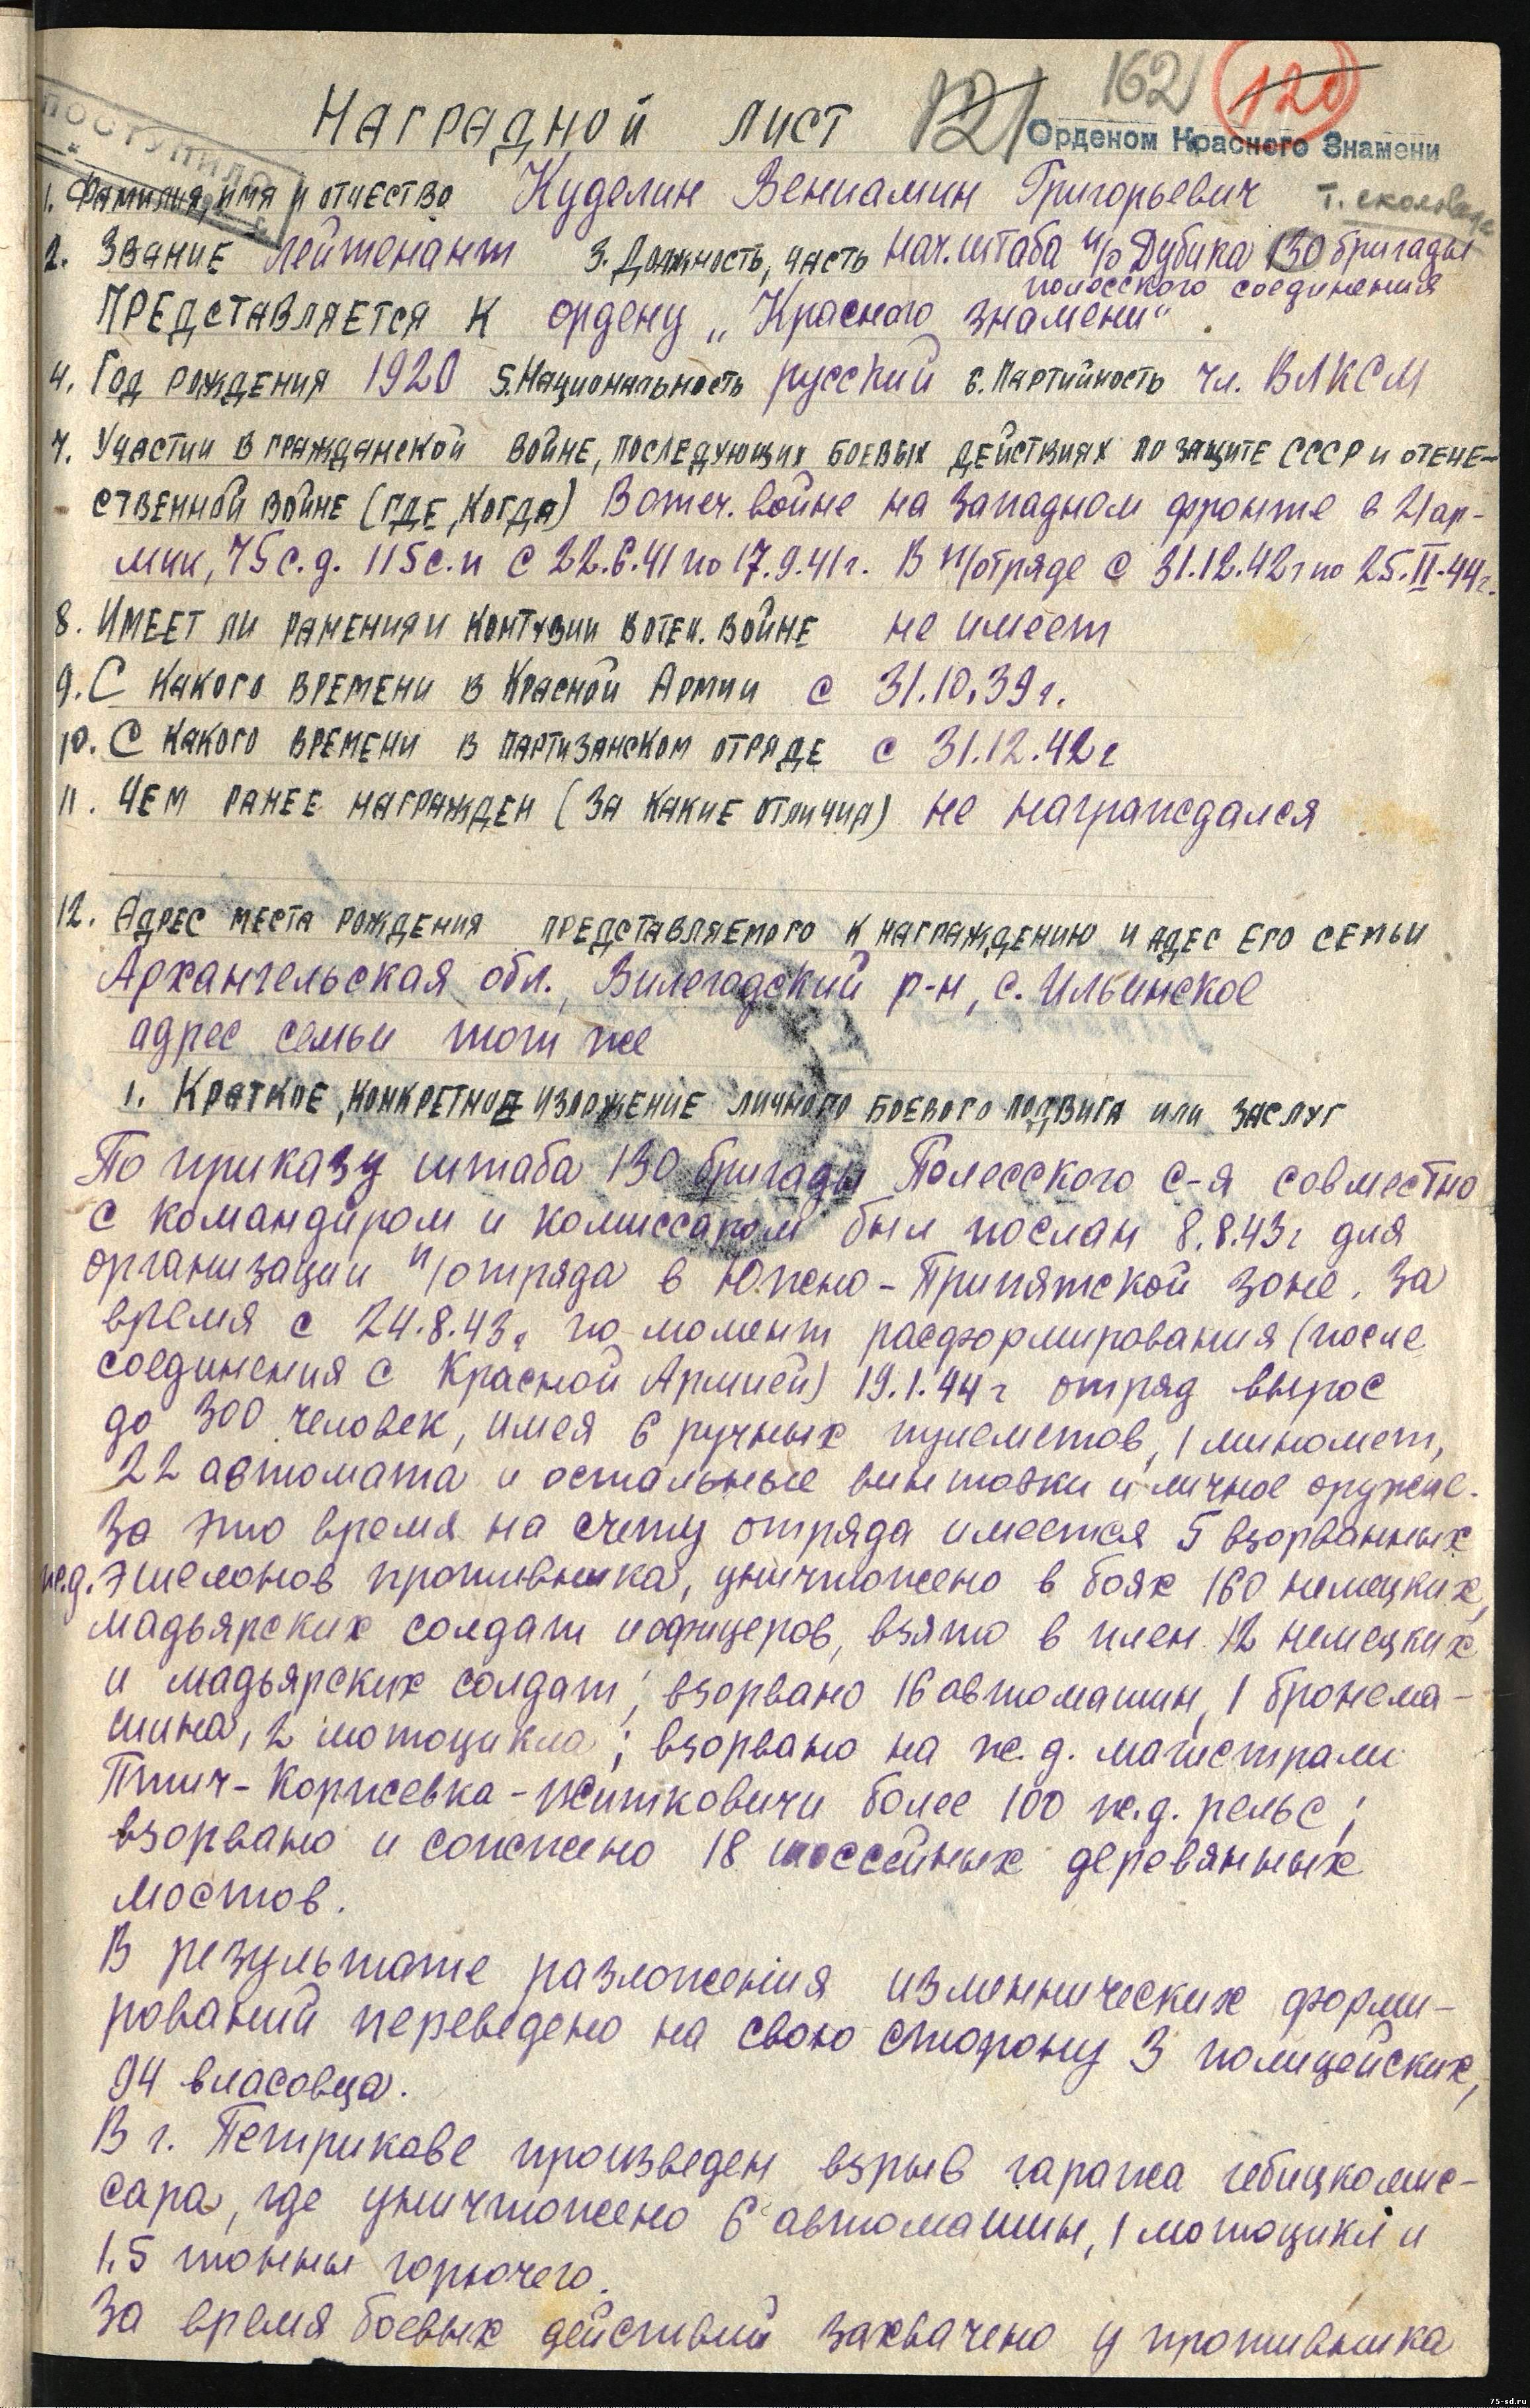 162
120
Наградной лист 121
Орденом Красного Знамени
ПОСТУПИЛО
1. Фамилия, имя и отчество Куделин Вениамин Григорьевич
2. Звание лейтенант 3. Должность, часть нач. штаба п/о Дубика 130 бригады
полесского соединения
Представляется к ордену „Красного знамени"
4. Год рождения 1920 5. Национальность русский 6. Партийность чл. ВЛКСМ
7. Участии в гражданской войне, последующих боевых действиях по защите СССР и отече-
ственной войне (где, когда) В отеч. войне на западном фронте в 21 ар-
мии, 75 с.д. 115 с.п с 22.6.41 по 17.9.41г. В п/отряде с 31.12.42г по 25.II.44г.
8. Имеет ли ранения и контузии в отеч. войне не имеет
9. С какого времени в Красной Армии с 31.10.39г.
10. С какого времени в партизанском отряде с 31.12.42г
11. Чем ранее награжден (за какие отличия) не награждался
12. Адрес места рождения представляемого к награждению и адес его семьи
Архангельская обл., Вилегодский р-н, с. Ильинское
адрес семьи тот же
1. Краткое, конкретное изложение личного боевого подвига или заслуг
По приказу штаба 130 бригады Полесского с-я совместно
с командиром и комиссаром был послан 8.8.43г для
организации п/отряда в Южно-Припятской зоне. За
время с 24.8.43г по момент расформирования (после
соединения с Красной Армией) 19.1.44г отряд вырос
до 300 человек, имея 6 ручных пулеметов, 1 миномет,
22 автомата и остальные винтовки и личное оружие.
За это время на счету отряда имеется 5 взорванных
ж.д. эшелонов противника, уничтожено в боях 160 немецких,
мадьярских солдат и офицеров, взято в плен 12 немецких
и мадьярских солдат; взорвано 16 автомашин, 1 бронема-
шина, 2 мотоцикла; взорвано на ж.д. магистрали
Птич-Коржевка-Житковичи более 100 ж.д. рельс;
взорвано и сожжено 18 шоссейных деревянных
мостов.
В результате разложения изменнических форми-
рований переведено на свою сторону 3 полицейских,
94 власовца.
В г. Петрикове произведен взрыв гаража гебицкомис-
сара, где уничтожено 6 автомашин, 1 мотоцикл и
1,5 тонны горючего.
За время боевых действий захвачено у противника
75-sd.ru